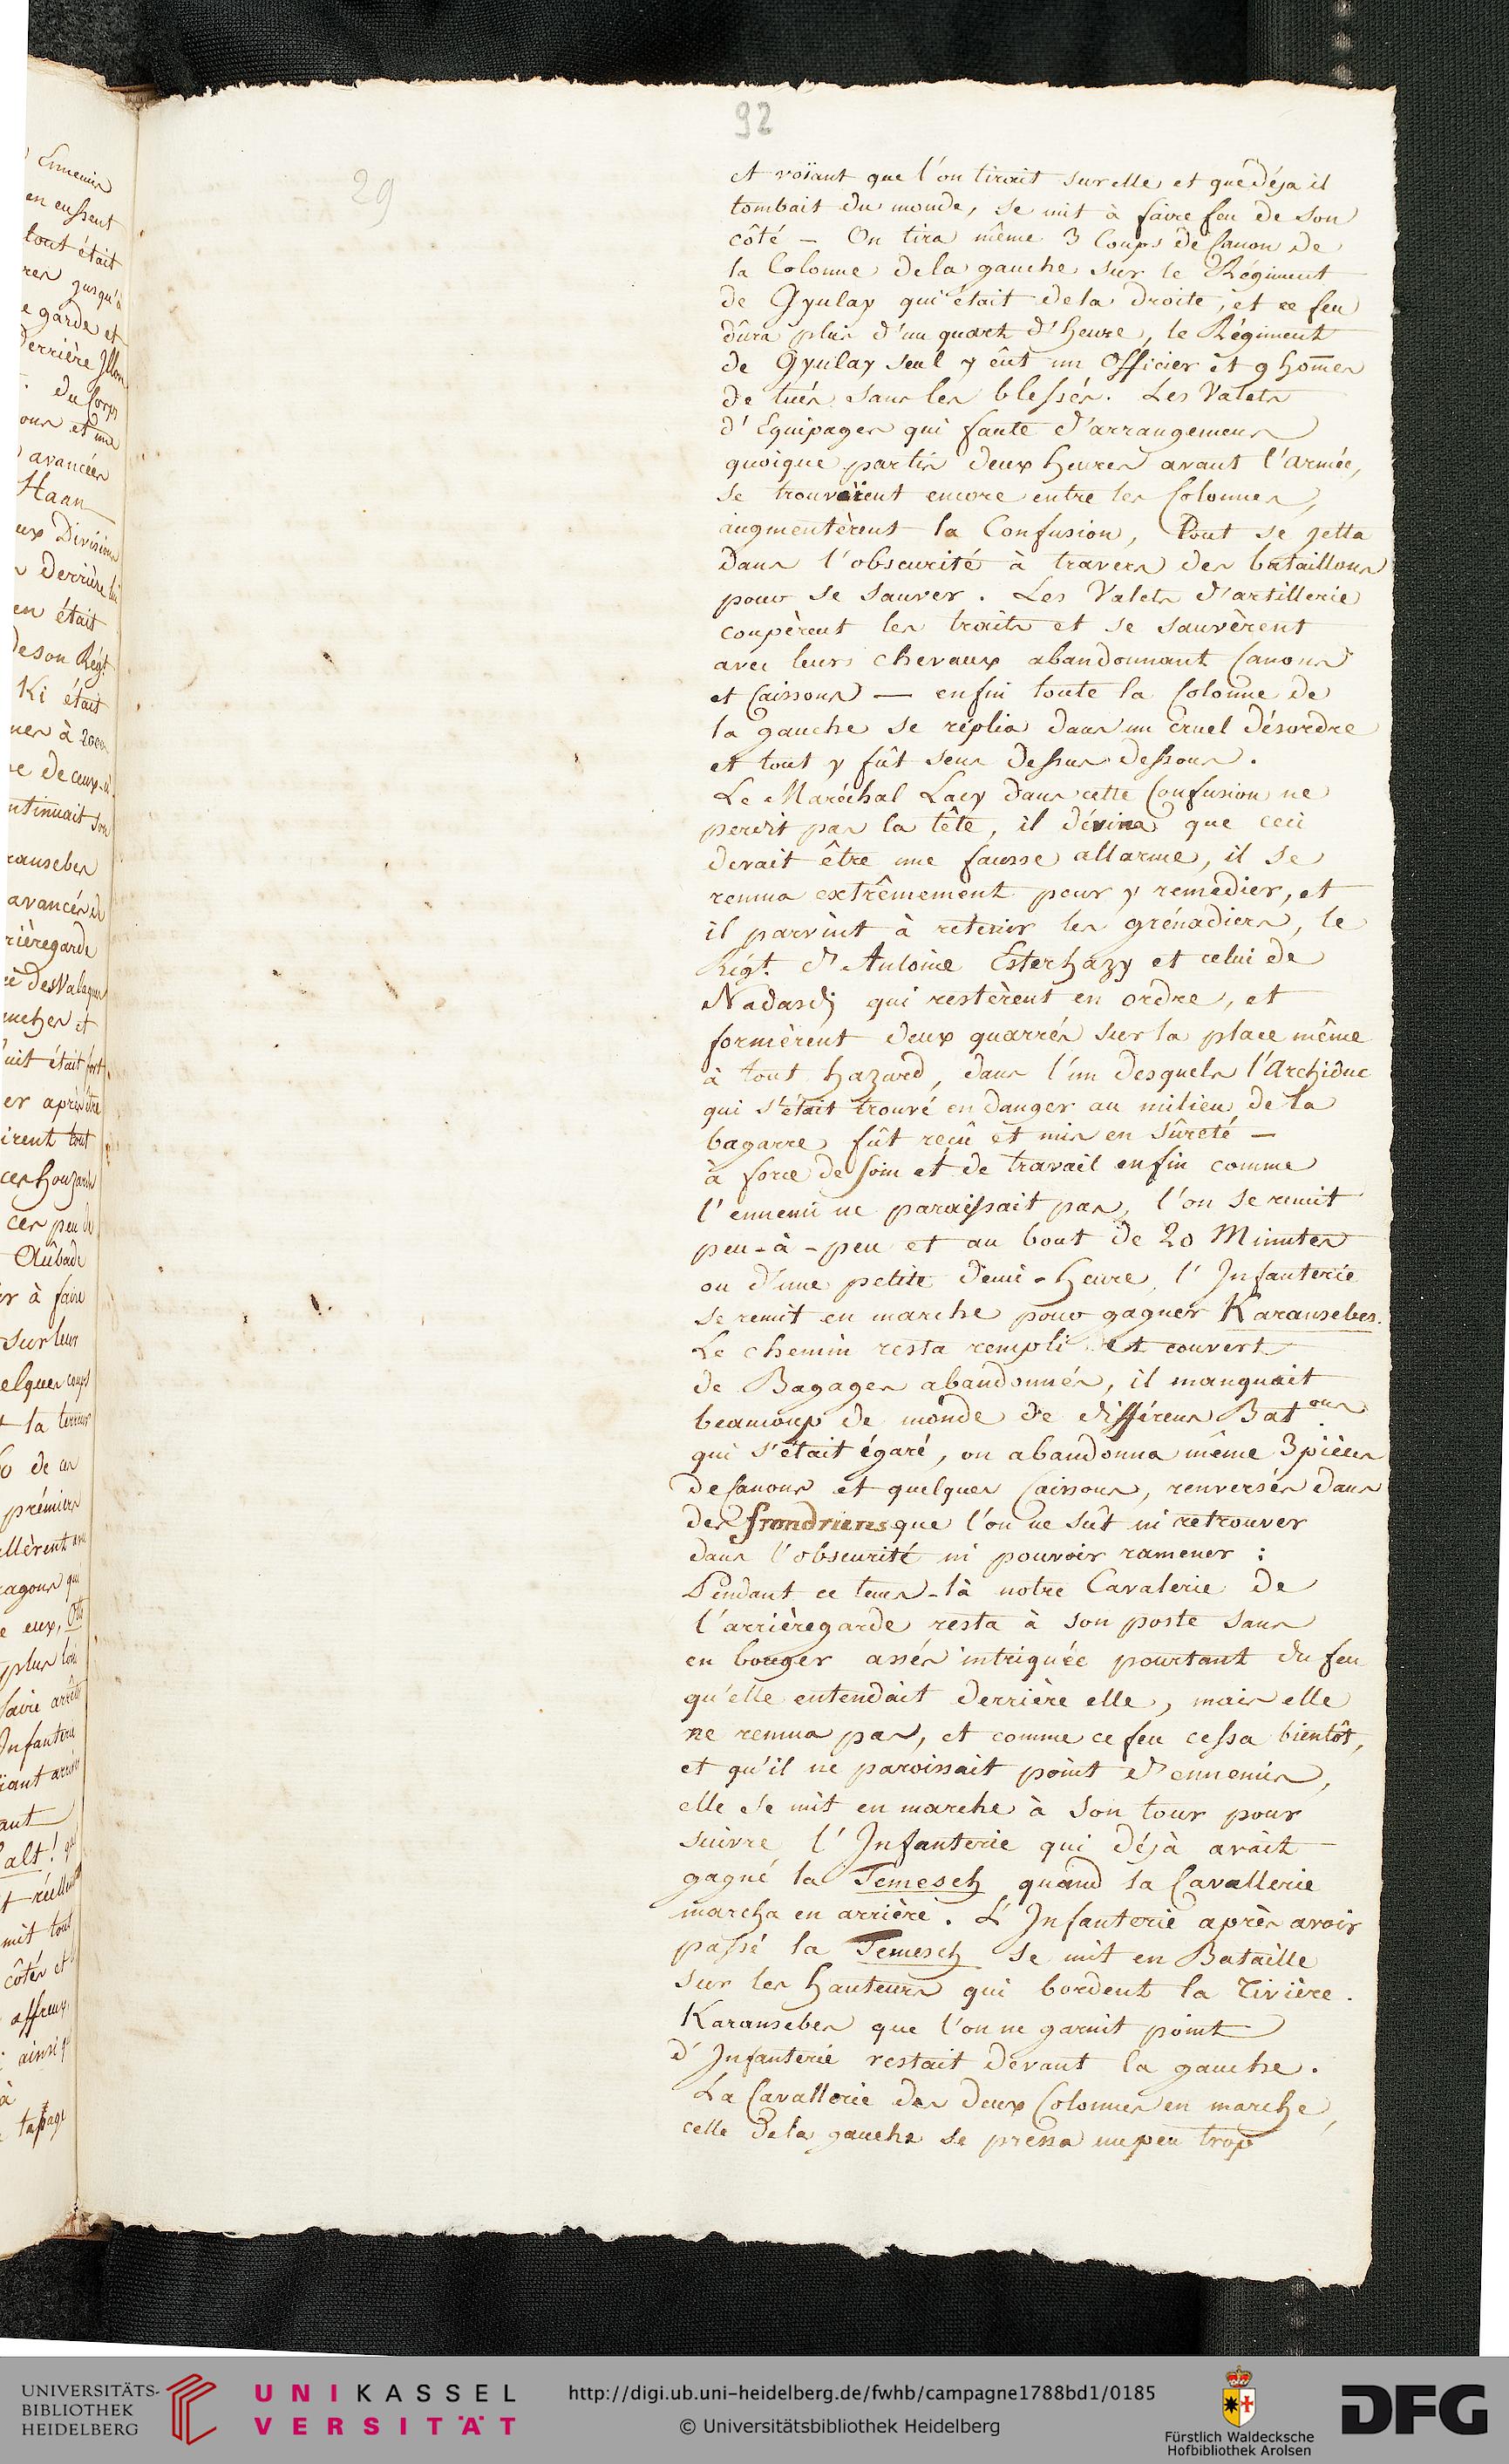 92
29
et voïant que l'on tirait sur elle et que déja il
tombait du monde, se mit à faire feu de son
côté – On tira même 3 Coups de Canon de
la Colonne dela gauche sur le Régiment
de Gyulay qui était dela droite, et ce feu
dûra plus d'un quart d'heure, le Régiment
de Gyulay seul y eût un Officier et 9 hom̄es
de tués sans les blessés. Les Valets
d'Equipages qui faute d'arrangemens
quoique partis deux heures avant l'armée,
se trouvaïent encore entre les Colonnes,
augmentèrent la Confusion, Tout se jetta
dans l'obscurité à travers des bataillons
pour se sauver. Les Valets d'artillerie
coupèrent les traits et se sauvèrent
avec leurs chevaux abandonnant Canons
et Caissons — enfin toute la Colonne de
la gauche se réplia dans un cruel désordre
et tout y fût sens dessus dessous.
Le Maréchal Lacy dans cette Confusion ne
perdit pas la tête, il dévina que ceci
devait être une fausse allarme, il se
remua extrêmement pour y remedier, et
il parvint à retenir les grénadiers, le
Régt. d'Antoine Esterhazy et celui de
Nadasdj qui restèrent en ordre, et
formèrent deux quarrés sur la place même
à tout hazard, dans l'un desquels l'Archiduc
qui s'était trouvé en danger au milieu de la
bagarre fût reçû et mis en sûreté –
à force de soin et de travail enfin comme
l'ennemi ne paraissait pas, l'on se remit
peu-à-peu et au bout de 20 Minutes
ou d'une petite demi-heure, l'Infanterie
se remit en marche pour gagner Karansebes.
Le chemin resta rempli et couvert
de Bagages abandonnés, il manquait
beaucoup de monde de différens Bat.ons
qui s'était égaré, on abandonna même 3 pièces
de Canons et quelques Caissons, renversés dans
des frondriers que l'on ne sût ni retrouver
dans l'obscurité ni pouvoir ramener :
Pendant ce tems-là notre Cavalerie de
l'arrièregarde resta à son poste sans
en bouger assés intriguée pourtant du feu
qu'elle entendait derrière elle, mais elle
ne remua pas, et comme ce feu cessa bientôt,
et qu'il ne paroissait point d'ennemis,
elle se mit en marche à son tour pour
suivre l'Infanterie qui déjà avait
gagné la Temesch quand la Cavallerie
marcha en arriére. L'Infanterie après avoir
passé la Temesch se mit en Bataille
sur les hauteurs qui bordent la rivière.
Karansebes que l'on ne garnit point
d'Infanterie restait devant la gauche.
La Cavallerie des deux Colonnes en marche,
celle dela gauche se pressa un peu trop
UNIVERSITÄTS-
BIBLIOTHEK
HEIDELBERG
UNIKASSEL
VERSITÄT
http://digi.ub.uni-heidelberg.de/fwhb/campagne1788bd1/0185
© Universitätsbibliothek Heidelberg
Fürstlich Waldecksche
Hofbibliothek Arolsen
DFG